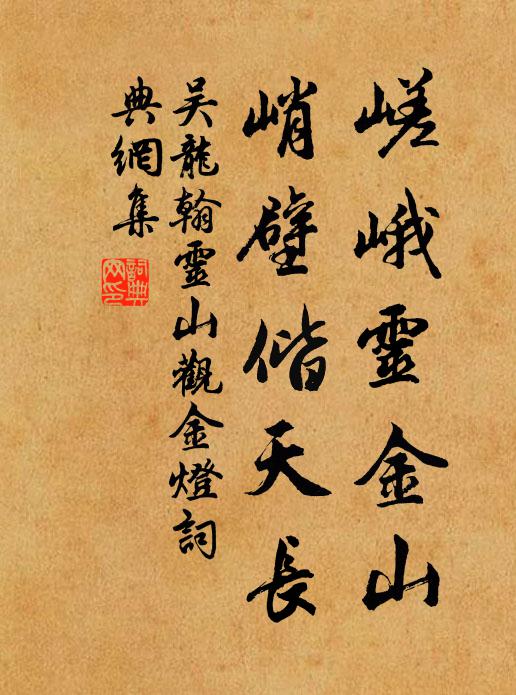 嵯峨靈金山
峭壁偕天長
吴龍翰靈山觀金燈詞
典網集
詞典
网印